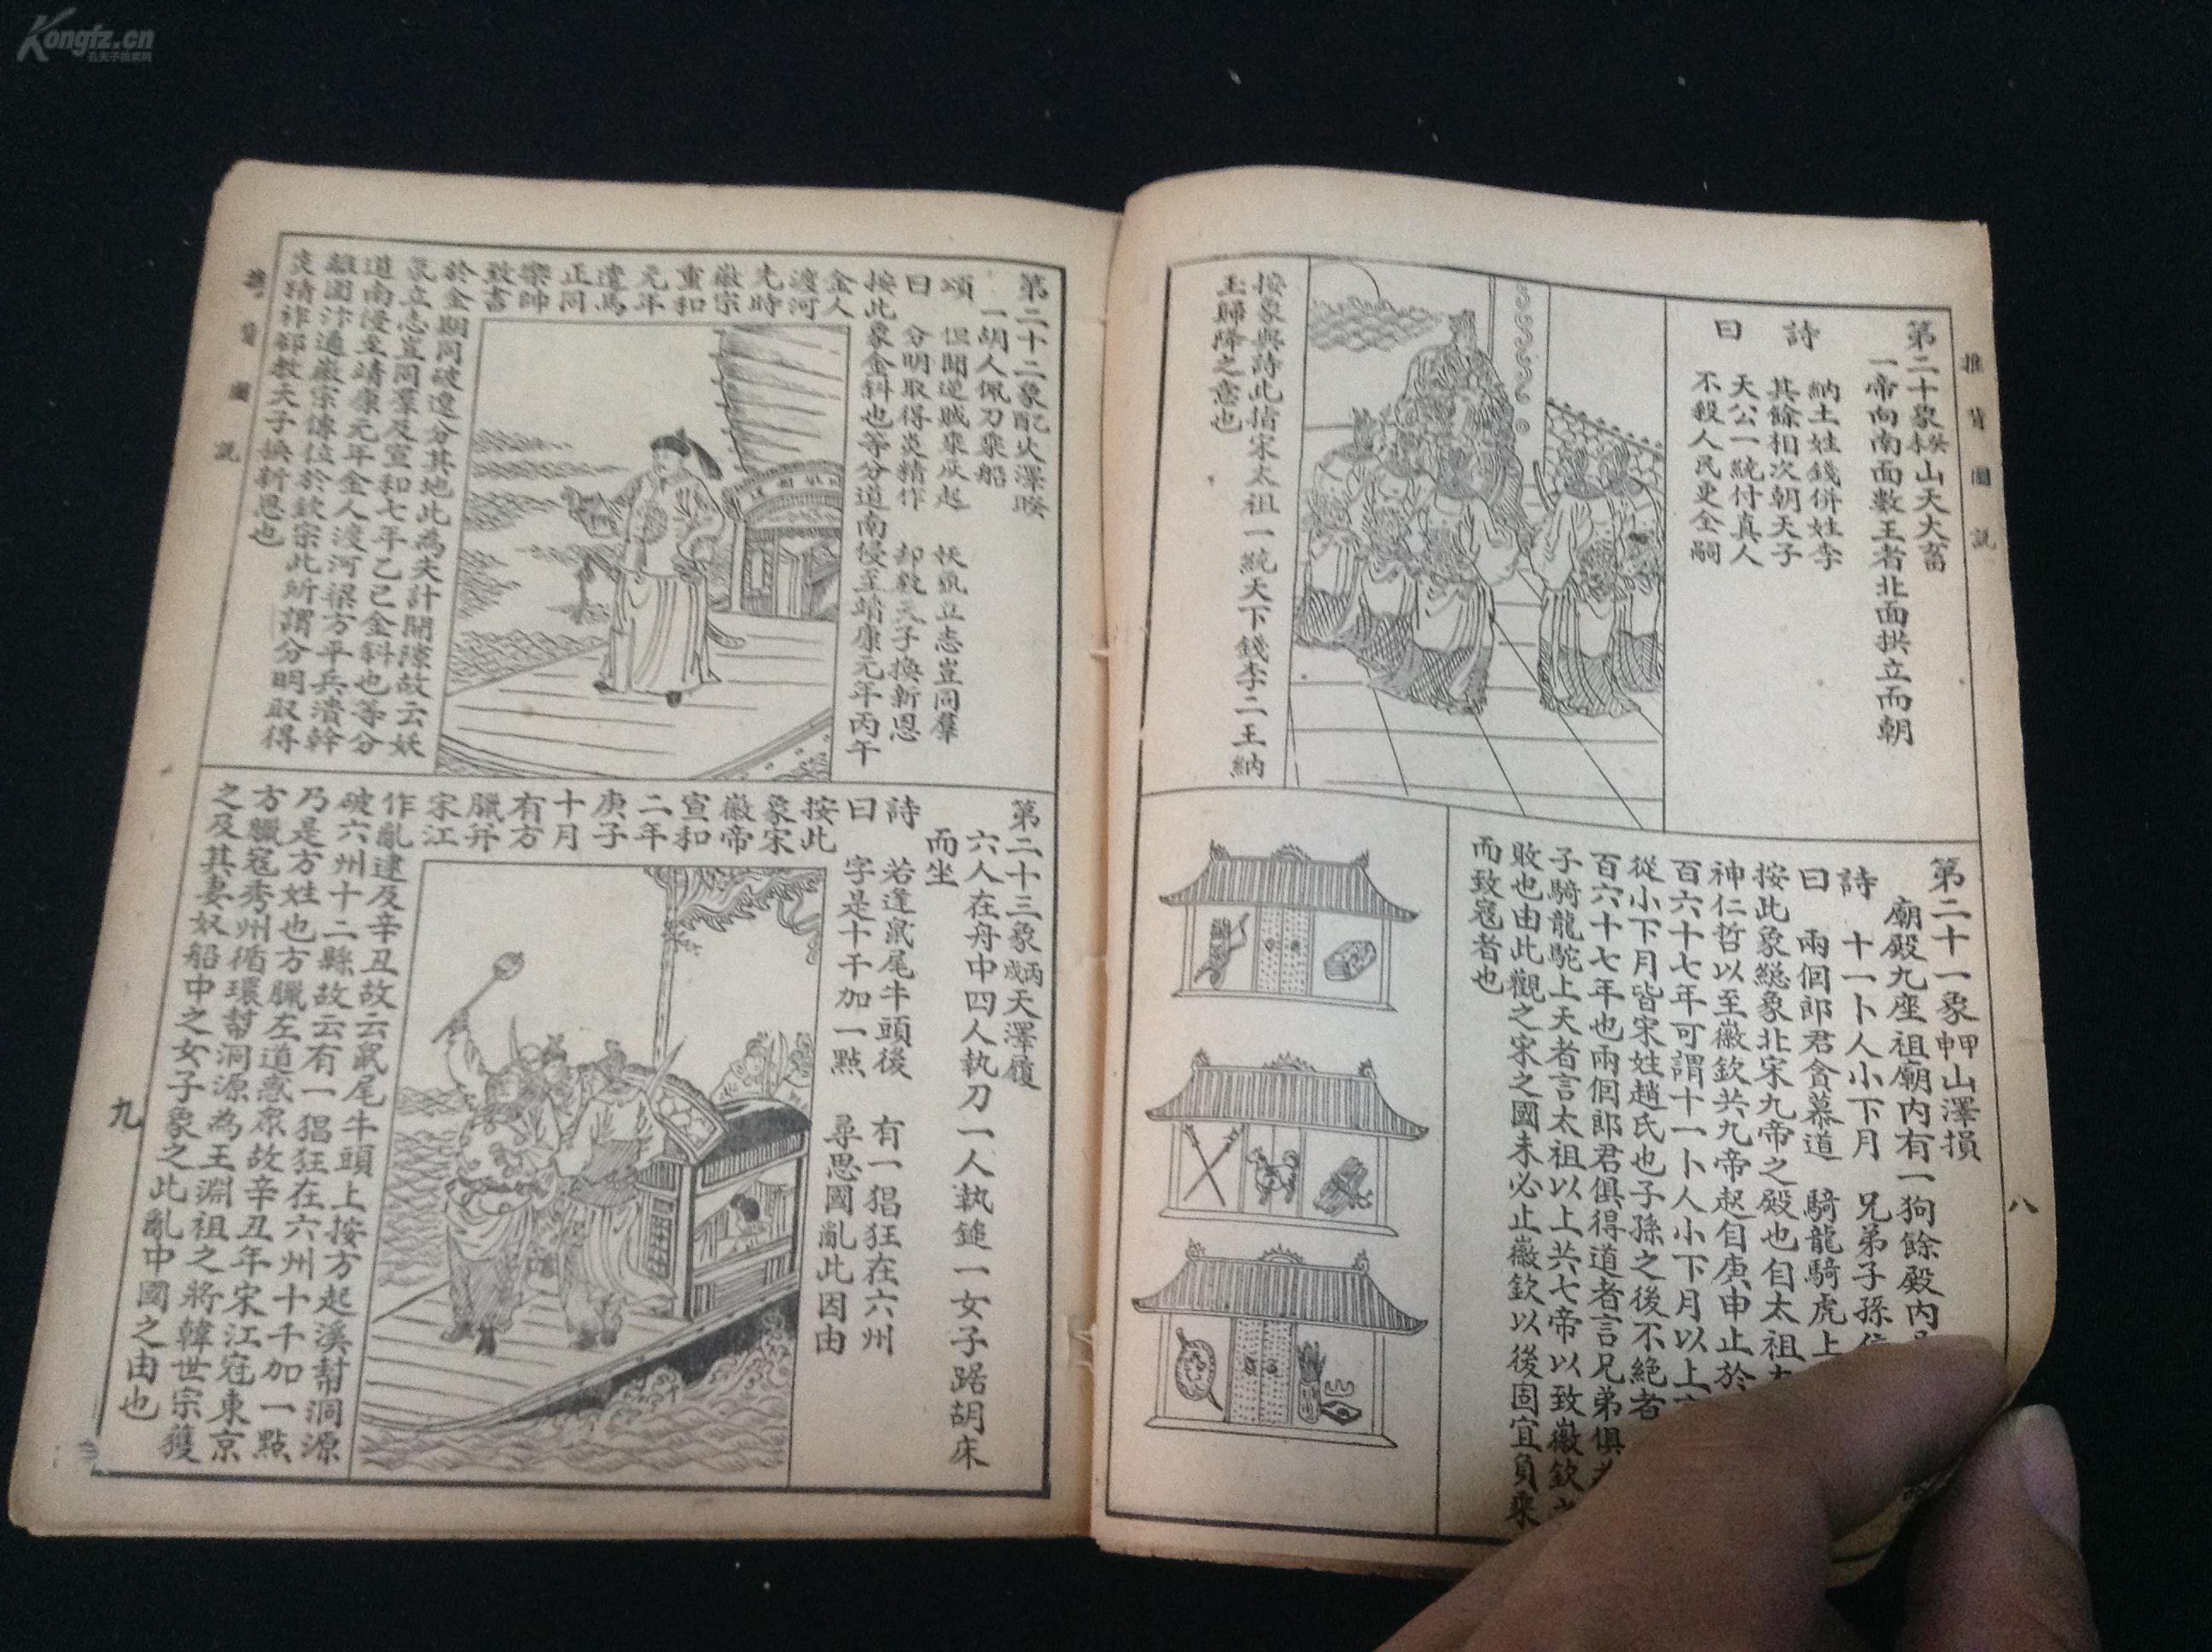 Kongfz.cn
孔夫子旧书网
推背圖說
八
第二十象癸癸山天大畜
一帝向南面數王者北面拱立而朝
詩曰
納土姓錢併姓李
其餘相次朝天子
天公一統付真人
不殺人民更全嗣
按象與詩此指宋太祖一統天下錢李二王納
土歸降之意也
第二十一象甲申山澤損
廟殿九座祖廟內有一狗餘殿內
詩曰
十一卜人小下月
兄弟子孫
兩個郎君貪慕道
騎龍騎虎上
按此象總象北宋九帝之殿也自太祖
神仁哲以至徽欽共九帝起自庚申止於
百六十七年可謂十一卜人小下月以上
從小下月皆宋姓趙氏也子孫之後不絕者
百六十七年也兩個郎君俱得道者言兄弟俱
子騎龍駝上天者言太祖以上共七帝以致徽欽
敗也由此觀之宋之國未必止徽欽以後固宜負乘
而致寇者也
推背圖說
九
第二十二象配火澤睽
一胡人佩刀乘船
頌曰
但聞逆賊乘瓜起
妖氛立志豈同羣
分明取得炎精作
却教天子換新恩
按此象金斜也等分道南侵至靖康元年丙午
金人
渡河
先時
徽宗
重和
元年
遣馬
正同
樂帥
致書
於金期同破遼分其地此為失計開隙故云妖
氛立志豈同羣及宣和七年乙巳金斜也等分
道南侵至靖康元年金人渡河梁方平兵潰幹
離圍汴遍徽宗傳位於欽宗此所謂分明取得
炎精作却教天子換新恩也
第二十三象丙戌天澤履
六人在舟中四人執刀一人執鎚一女子踞胡床
而坐
詩曰
若逢鼠尾牛頭後
有一猖狂在六州
字是十千加一點
尋思國亂此因由
按此
象宋
徽帝
宣和
二年
庚子
十月
有方
臘并
宋江
作亂建及辛丑故云鼠尾牛頭上按方起溪幇洞源
破六州十二縣故云有一猖狂在六州十千加一點
乃是方姓也方臘左道惑眾故辛丑年宋江寇東京
方臘寇秀州循環幇洞源為王淵祖之將韓世宗獲
之及其妻奴船中之女子象之此亂中國之由也